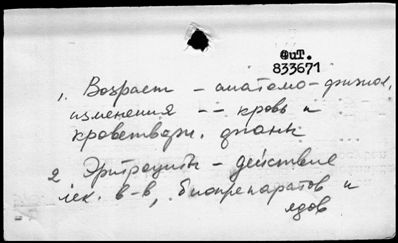 Фит.
833671
1. Возраст - анатомо-физиол.
изменения -- кровь и
кроветворн. органы
2 Эритроциты - действие
лек. в-в, биопрепаратов и
ядов